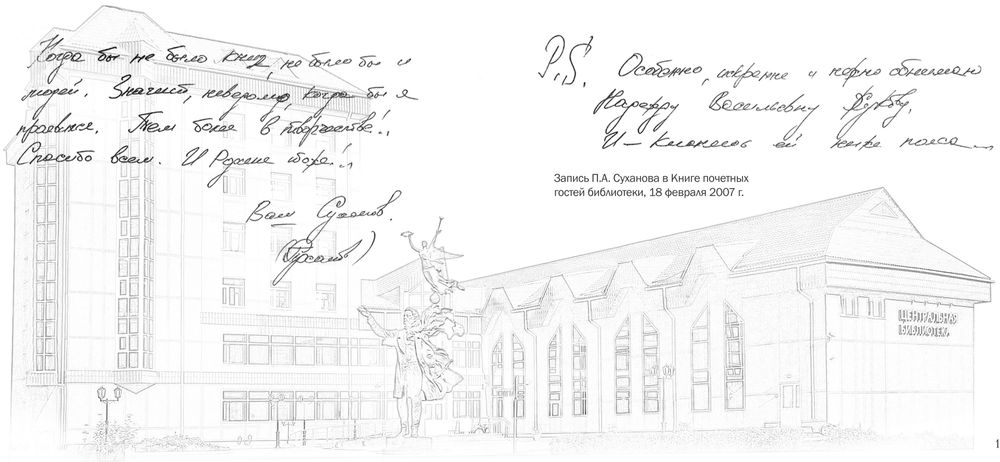 Когда бы не было книг, не было бы и
людей. Значит, неведомо, когда бы я
проявился. Тем более в творчестве!..
Спасибо всем. И
Ваш Суханов.
P.S. Особенно, искренне и нежно обнимаю
Васильевну
И – кланяюсь ей ниже пояса...
Запись П.А. Суханова в Книге почетных
гостей библиотеки, 18 февраля 2007 г.
ЦЕНТРАЛЬНАЯ
БИБЛИОТЕКА
1